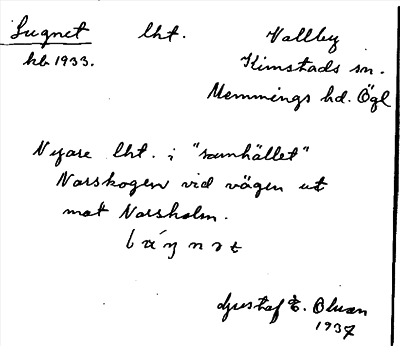 Lugnet lht. Vallby
kb 1933. Kimstads sn.
Memmings hd. Ögl
Nyare lht. i "samhället"
Norskogen vid vägen ut
mot Norsholm.
Gustaf E. Olsson
1937